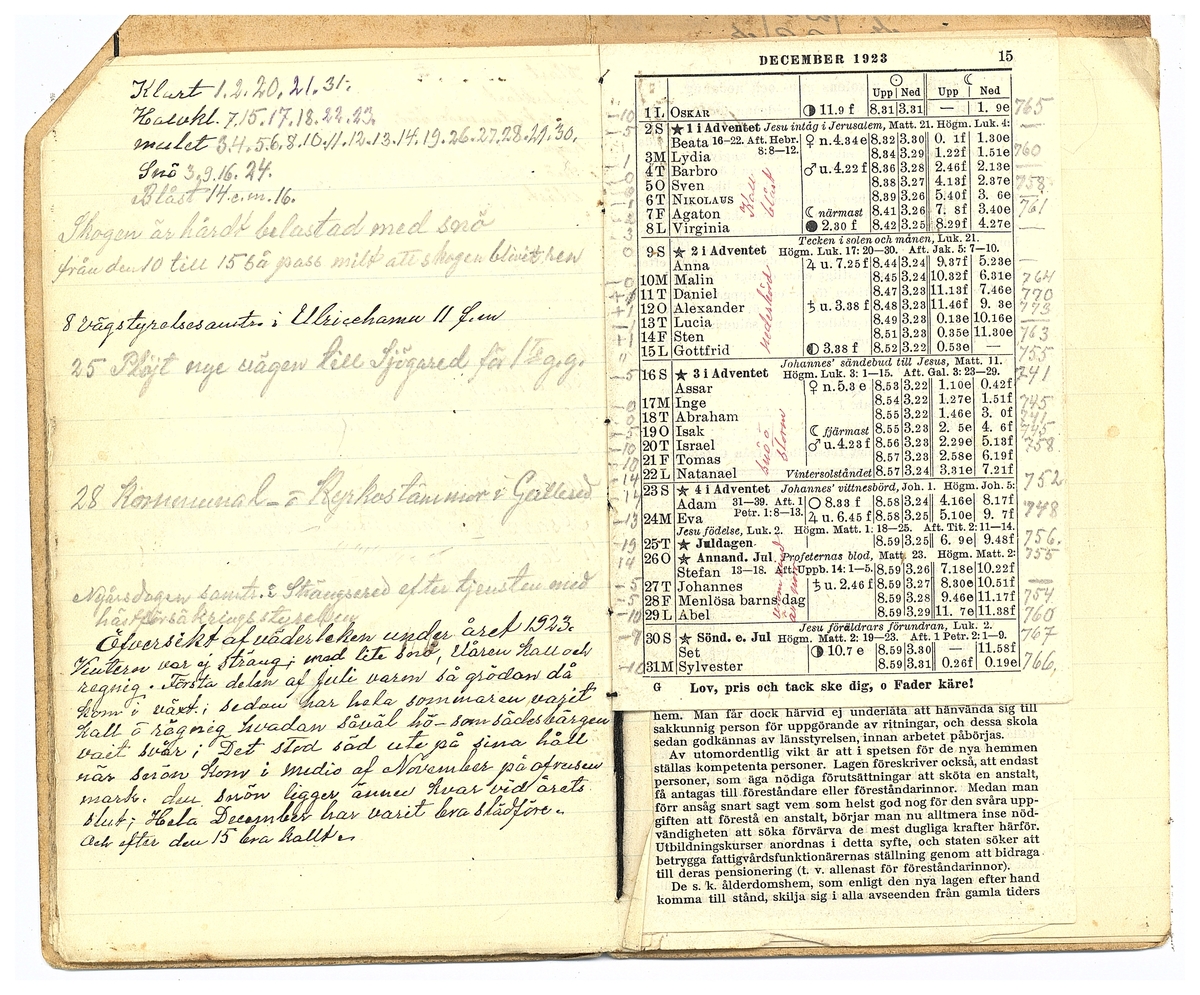 Klart 1. 2. 20. 21. 31.
Halvkl. 7. 15. 17. 18. 22. 23.
mulet 3.4.5.6.8.10.11.12.13.14.19.26.27.28.29.30.
Snö 3, 9. 16. 24.
Blåst 14. e. m. 16.
Skogen är hårdt belastad med snö
från den 10 till 15 så pass mildt att skogen blivit ren
8 Vägstyrelsesamtr. i Ulricehamn 11 f.m
25 Plöjt nye vägen till Sjögared för 1sta g.g.
28 Kommunal- o Kyrkostämmor i Gällared
Nyårsdagen samtr. i Strängsered efter tjensten med
hästförsäkringsstyrelsen
Öfversikt af väderleken under året 1923.
Vintern var ej sträng; med lite snö, Våren kall och
regnig. Första delen af juli varm så grödan då
kom i växt; sedan har hela sommaren varit
kall o rägnig hvadan såväl hö- som sädesbärgen
varit svår; Det stod säd ute på sina håll
när snön kom i medio af November på ofrusen
mark. den snön ligger ännu kvar vid årets
slut; Hela December har varit bra slädföre.
och efter den 15 bra kallt.
DECEMBER 1923 15
Upp Ned Upp Ned
1 L Oskar ◑ 11.9 f 8.31 3.31 — 1. 9e 765
2 S ★ 1 i Adventet Jesu intåg i Jerusalem, Matt. 21. Högm. Luk. 4: —
Beata 16—22. Aft. Hebr. ♀ n. 4.34 e 8.32 3.30 0. 1f 1.30e
3 M Lydia 8: 8—12. 8.34 3.29 1.22f 1.51e 760
4 T Barbro ♂ u. 4.22 f 8.36 3.28 2.46f 2.13e
5 O Sven 8.38 3.27 4.13f 2.37e 758
6 T Nikolaus 8.39 3.26 5.40f 3. 6e
7 F Agaton ☾ närmast 8.41 3.26 7. 8f 3.40e 761
8 L Virginia ● 2.30 f 8.42 3.25 8.29f 4.27e —
Kall blåst
Tecken i solen och månen, Luk. 21.
9 S ★ 2 i Adventet Högm. Luk. 17: 20—30. Aft. Jak. 5: 7—10.
Anna ♃ u. 7.25 f 8.44 3.24 9.37f 5.23e —
10 M Malin 8.45 3.24 10.32f 6.31e 764
11 T Daniel 8.47 3.23 11.13f 7.46e 770
12 O Alexander ♄ u. 3.38 f 8.48 3.23 11.46f 9. 3e 773
13 T Lucia 8.49 3.23 0.13e 10.16e —
14 F Sten 8.51 3.23 0.35e 11.30e 763
15 L Gottfrid ◐ 3.38 f 8.52 3.22 0.53e — 755
nederbörd
Johannes' sändebud till Jesus, Matt. 11.
16 S ★ 3 i Adventet Högm. Luk. 3: 1—15. Aft. Gal. 3: 23—29. 741
Assar ♀ n. 5.3 e 8.53 3.22 1.10e 0.42f
17 M Inge 8.54 3.22 1.27e 1.51f 745
18 T Abraham 8.55 3.22 1.46e 3. 0f 741
19 O Isak ☾ fjärmast 8.55 3.23 2. 5e 4. 6f 745
20 T Israel ♂ u. 4.23 f 8.56 3.23 2.29e 5.13f 758
21 F Tomas 8.57 3.23 2.58e 6.19f
22 L Natanael Vintersolståndet 8.57 3.24 3.31e 7.21f 752
snö o storm
23 S ★ 4 i Adventet Johannes' vittnesbörd, Joh. 1. Högm. Joh. 5:
Adam 31—39. Aft. 1 ○ 8.33 f 8.58 3.24 4.16e 8.17f
24 M Eva Petr. 1: 8—13. ♃ u. 6.45 f 8.58 3.25 5.10e 9. 7f 748
Jesu födelse, Luk. 2. Högm. Matt. 1: 18—25. Aft. Tit. 2: 11—14.
25 T ★ Juldagen 8.59 3.25 6. 9e 9.48f 756.
26 O ★ Annand. Jul Profeternas blod, Matt. 23. Högm. Matt. 2: 755
Stefan 13—18. Aft. Uppb. 14: 1—5. 8.59 3.26 7.18e 10.22f
27 T Johannes ♄ u. 2.46 f 8.59 3.27 8.30e 10.51f —
28 F Menlösa barns dag 8.59 3.28 9.46e 11.17f 754
29 L Abel 8.59 3.29 11. 7e 11.38f 760
Jesu föräldrars förundran, Luk. 2.
30 S ★ Sönd. e. Jul Högm. Matt. 2: 19—23. Aft. 1 Petr. 2: 1—9. 767
Set ◑ 10.7 e 8.59 3.30 — 11.58f
31 M Sylvester 8.59 3.31 0.26f 0.19e 766,
G Lov, pris och tack ske dig, o Fader käre!
hem. Man får dock härvid ej underlåta att hänvända sig till
sakkunnig person för uppgörande av ritningar, och dessa skola
sedan godkännas av länsstyrelsen, innan arbetet påbörjas.
Av utomordentlig vikt är att i spetsen för de nya hemmen
ställas kompetenta personer. Lagen föreskriver också, att endast
personer, som äga nödiga förutsättningar att sköta en anstalt,
få antagas till föreståndare eller föreståndarinnor. Medan man
förr ansåg snart sagt vem som helst god nog för den svåra upp-
giften att förestå en anstalt, börjar man nu alltmera inse nöd-
vändigheten att söka förvärva de mest dugliga krafter härför.
Utbildningskurser anordnas i detta syfte, och staten söker att
betrygga fattigvårdsfunktionärernas ställning genom att bidraga
till deras pensionering (t. v. allenast för föreståndarinnor).
De s. k. ålderdomshem, som enligt den nya lagen efter hand
komma till stånd, skilja sig i alla avseenden från gamla tiders